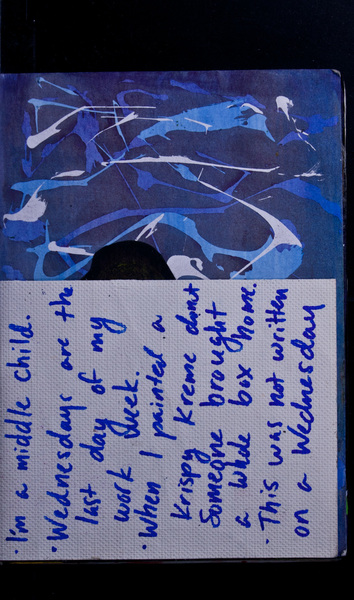 · I'm a middle child.
· Wednesdays are the
last day of my
work week.
· When I painted a
Krispy Kreme donut
Someone brought
a whole box home.
· This was not written
on a Wednesday